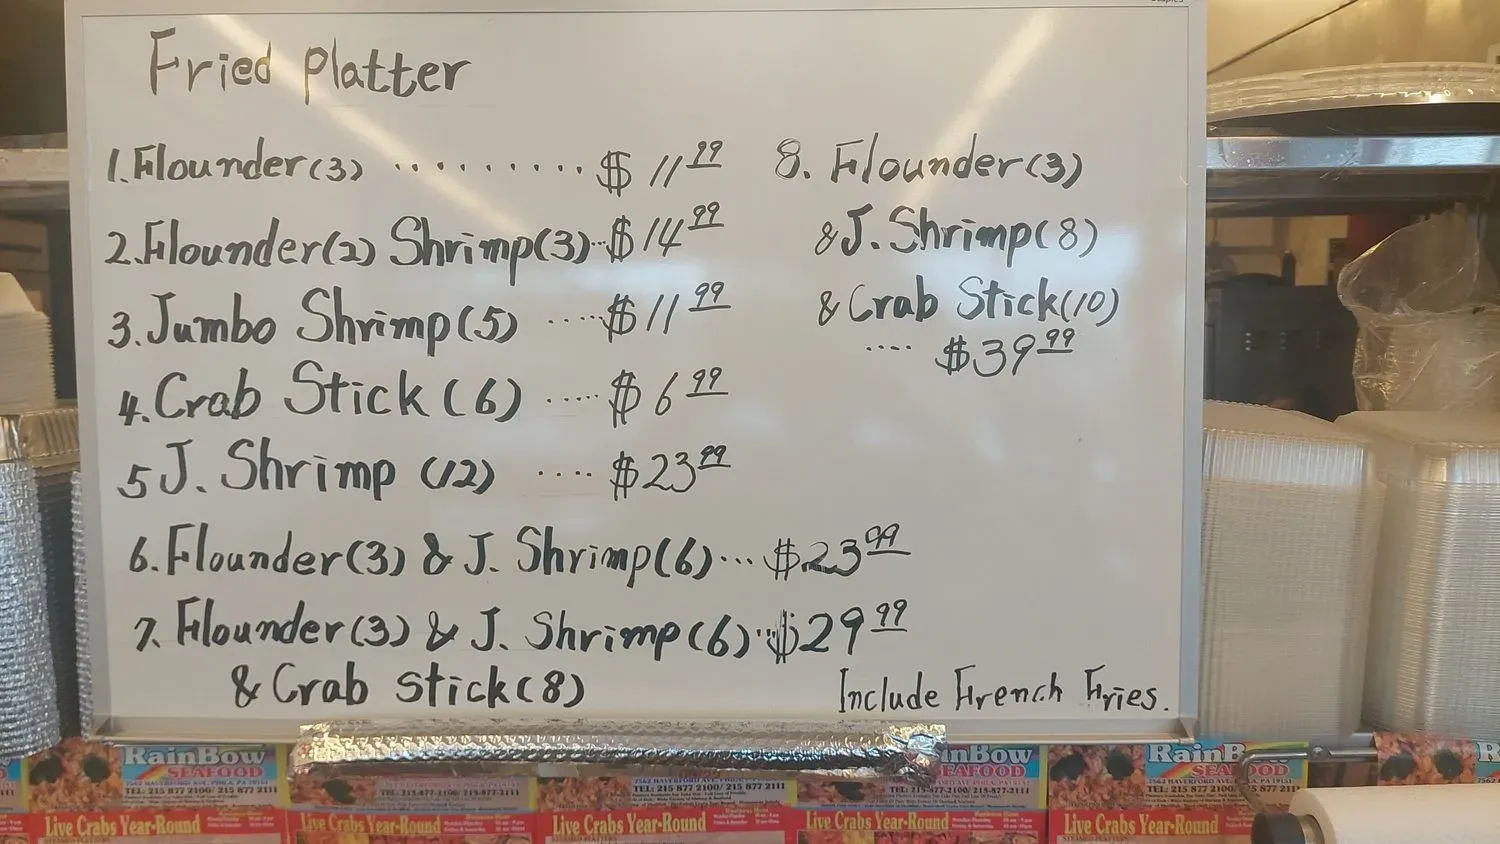 Fried Platter
1. Flounder (3) ......... $11.99
2. Flounder (2) Shrimp (3) .. $14.99
3. Jumbo Shrimp (5) ..... $11.99
4. Crab Stick (6) ..... $6.99
5 J. Shrimp (12) .... $23.99
6. Flounder (3) & J. Shrimp (6) ... $23.99
7. Flounder (3) & J. Shrimp (6) ... $29.99
& Crab Stick (8)
8. Flounder (3)
& J. Shrimp (8)
& Crab Stick (10)
.... $39.99
Include French Fries.
RainBow
SEAFOOD
7562 HAVERFORD AVE. PHILA, PA 19151
TEL: 215 877 2100/ 215 877 2111
Live Crabs Year-Round
TEL: 215-877-2100/ 215-877-2111
Live Crabs Year-Round
TEL: 215 877 2100/ 215 877 2111
Live Crabs Year-Round
inBow
EAFOOD
Live Crabs Year-Round
RainB
SEAFOOD
7562 HAVERFORD AVE. PHILA, PA 19151
TEL: 215 877 2100/ 215 877 2111
Live Crabs Year-Round